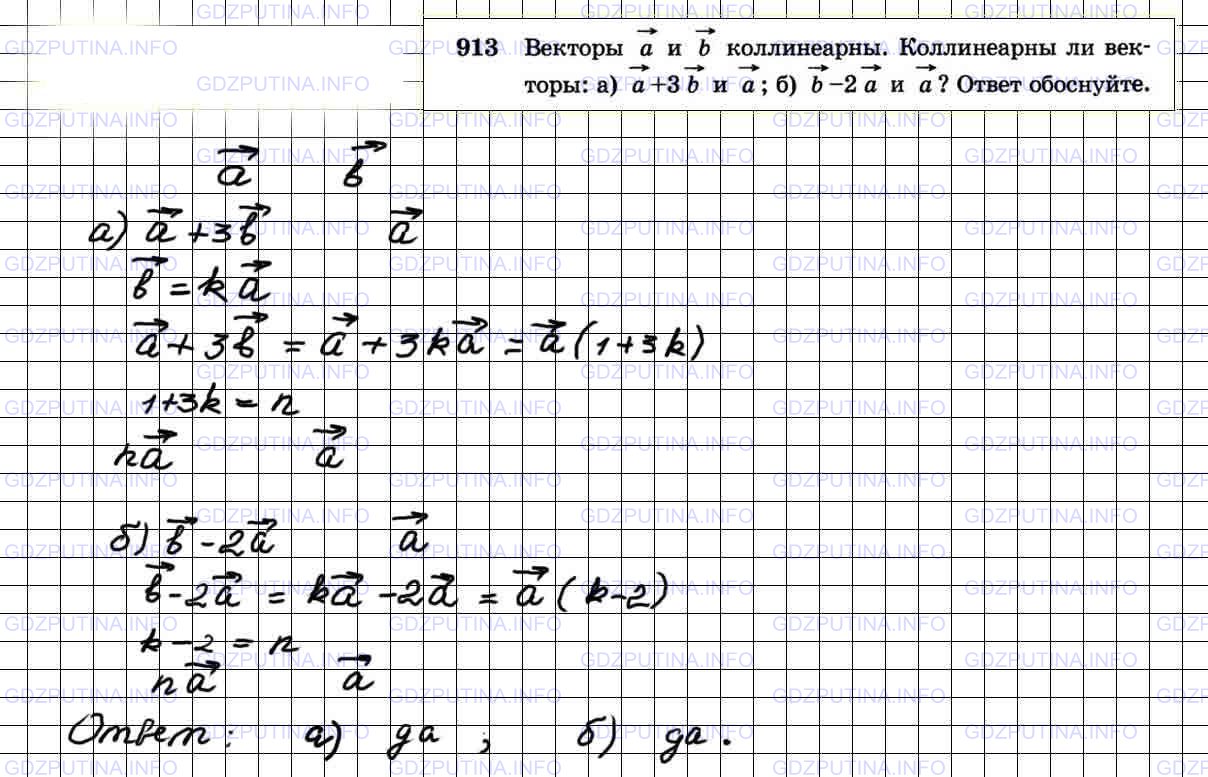 913 Векторы a⃗ и b⃗ коллинеарны. Коллинеарны ли век-
торы: а) a⃗ +3b⃗ и a⃗; б) b⃗ −2a⃗ и a⃗? Ответ обоснуйте.
a⃗ b⃗
а) a⃗ +3b⃗ a⃗
b⃗ = k a⃗
a⃗ + 3b⃗ = a⃗ + 3k a⃗ = a⃗ (1+3k)
1+3k = n
n a⃗ a⃗
б) b⃗ - 2a⃗ a⃗
b⃗ - 2a⃗ = k a⃗ - 2a⃗ = a⃗ (k-2)
k - 2 = n
n a⃗ a⃗
Ответ: а) да ; б) да.
GDZPUTINA.INFO